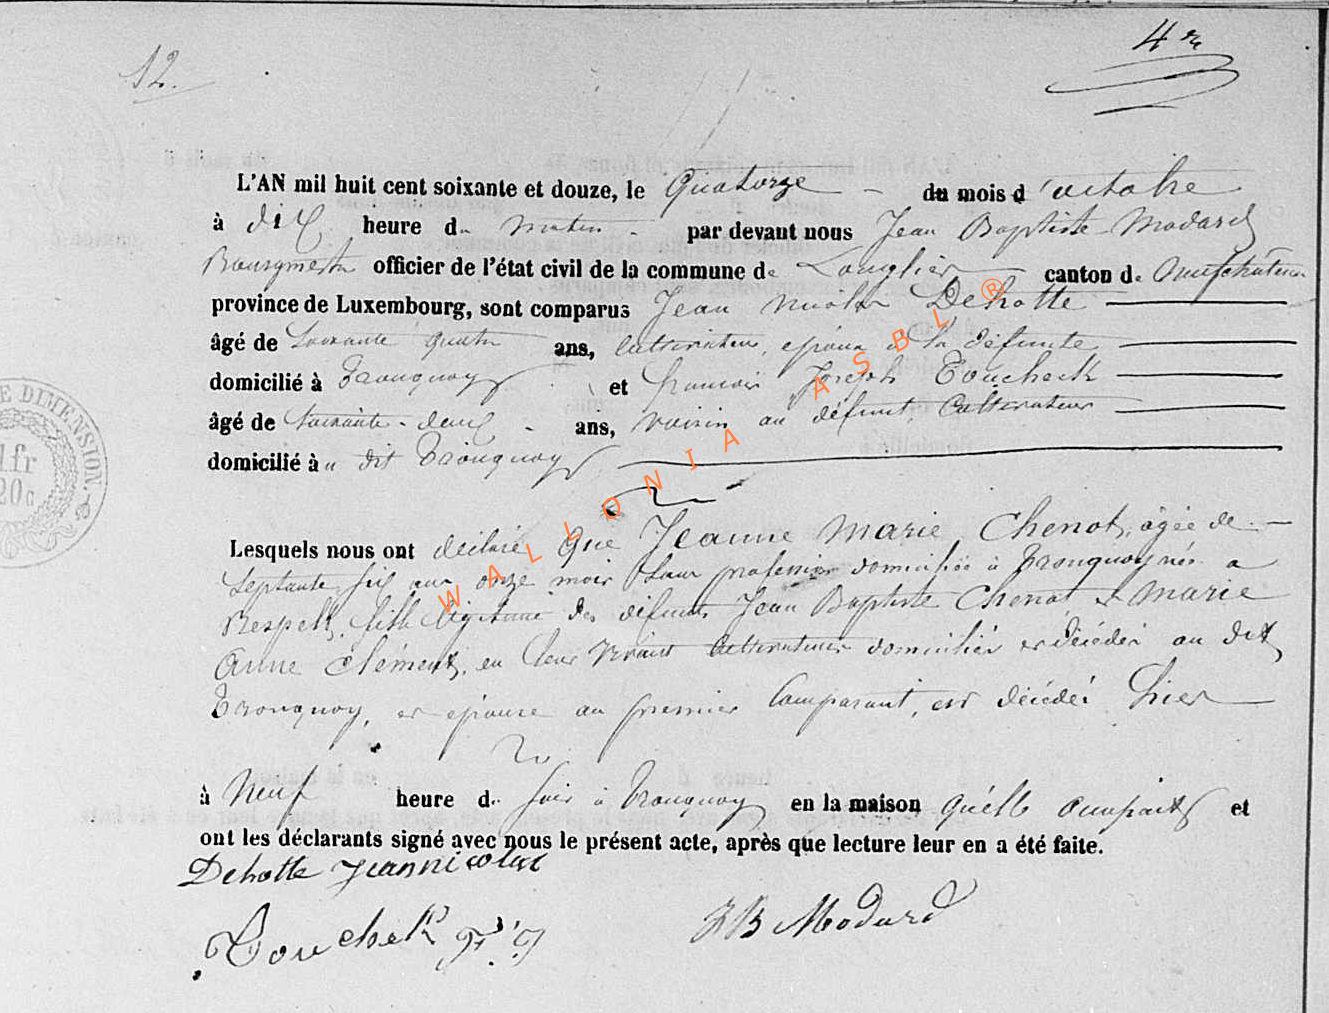 12.
4 re
L'AN mil huit cent soixante et douze, le Quatorze du mois d'octobre
à dix heure du matin par devant nous Jean Baptiste Modard
Bourgmestre officier de l'état civil de la commune de Longlier canton de Neufchâteau
province de Luxembourg, sont comparus Jean Nicolas Dehotte
âgé de Soixante quatre ans, cultivateur, époux à la défunte
domicilié à Tronquoy et francois Joseph Toucheck
âgé de Soixante-deux ans, voisin au défunt, Cultivateur
domicilié à u dit Tronquoy
Lesquels nous ont déclaré Que Jeanne Marie Chenot, âgée de
Septante six ans onze mois Sans profession domiciliée à Tronquoy née a
Respelt, fille légitime des défunts Jean Baptiste Chenot et Marie
Anne Clément, en leur vivant Cultivateurs domiciliés et décédés au dit
Tronquoy, et épouse au premier Comparant, est décédée hier
à Neuf heure du soir à Tronquoy en la maison qu'elle occupait et
ont les déclarants signé avec nous le présent acte, après que lecture leur en a été faite.
Dehotte Jeannicolas
Touchek F. J.
JB Modard
E DIMENSION.
1fr
20c
WALLONIA ASBL ®